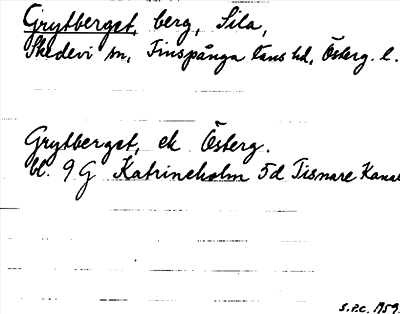 Grytberget, berg, Sila,
Skedevi sn, Finspånga läns hd, Österg. l.
Grytberget, ek Österg.
bl. 9 G Katrineholm 5d Tisnare Kanal
S.P.C. 1959